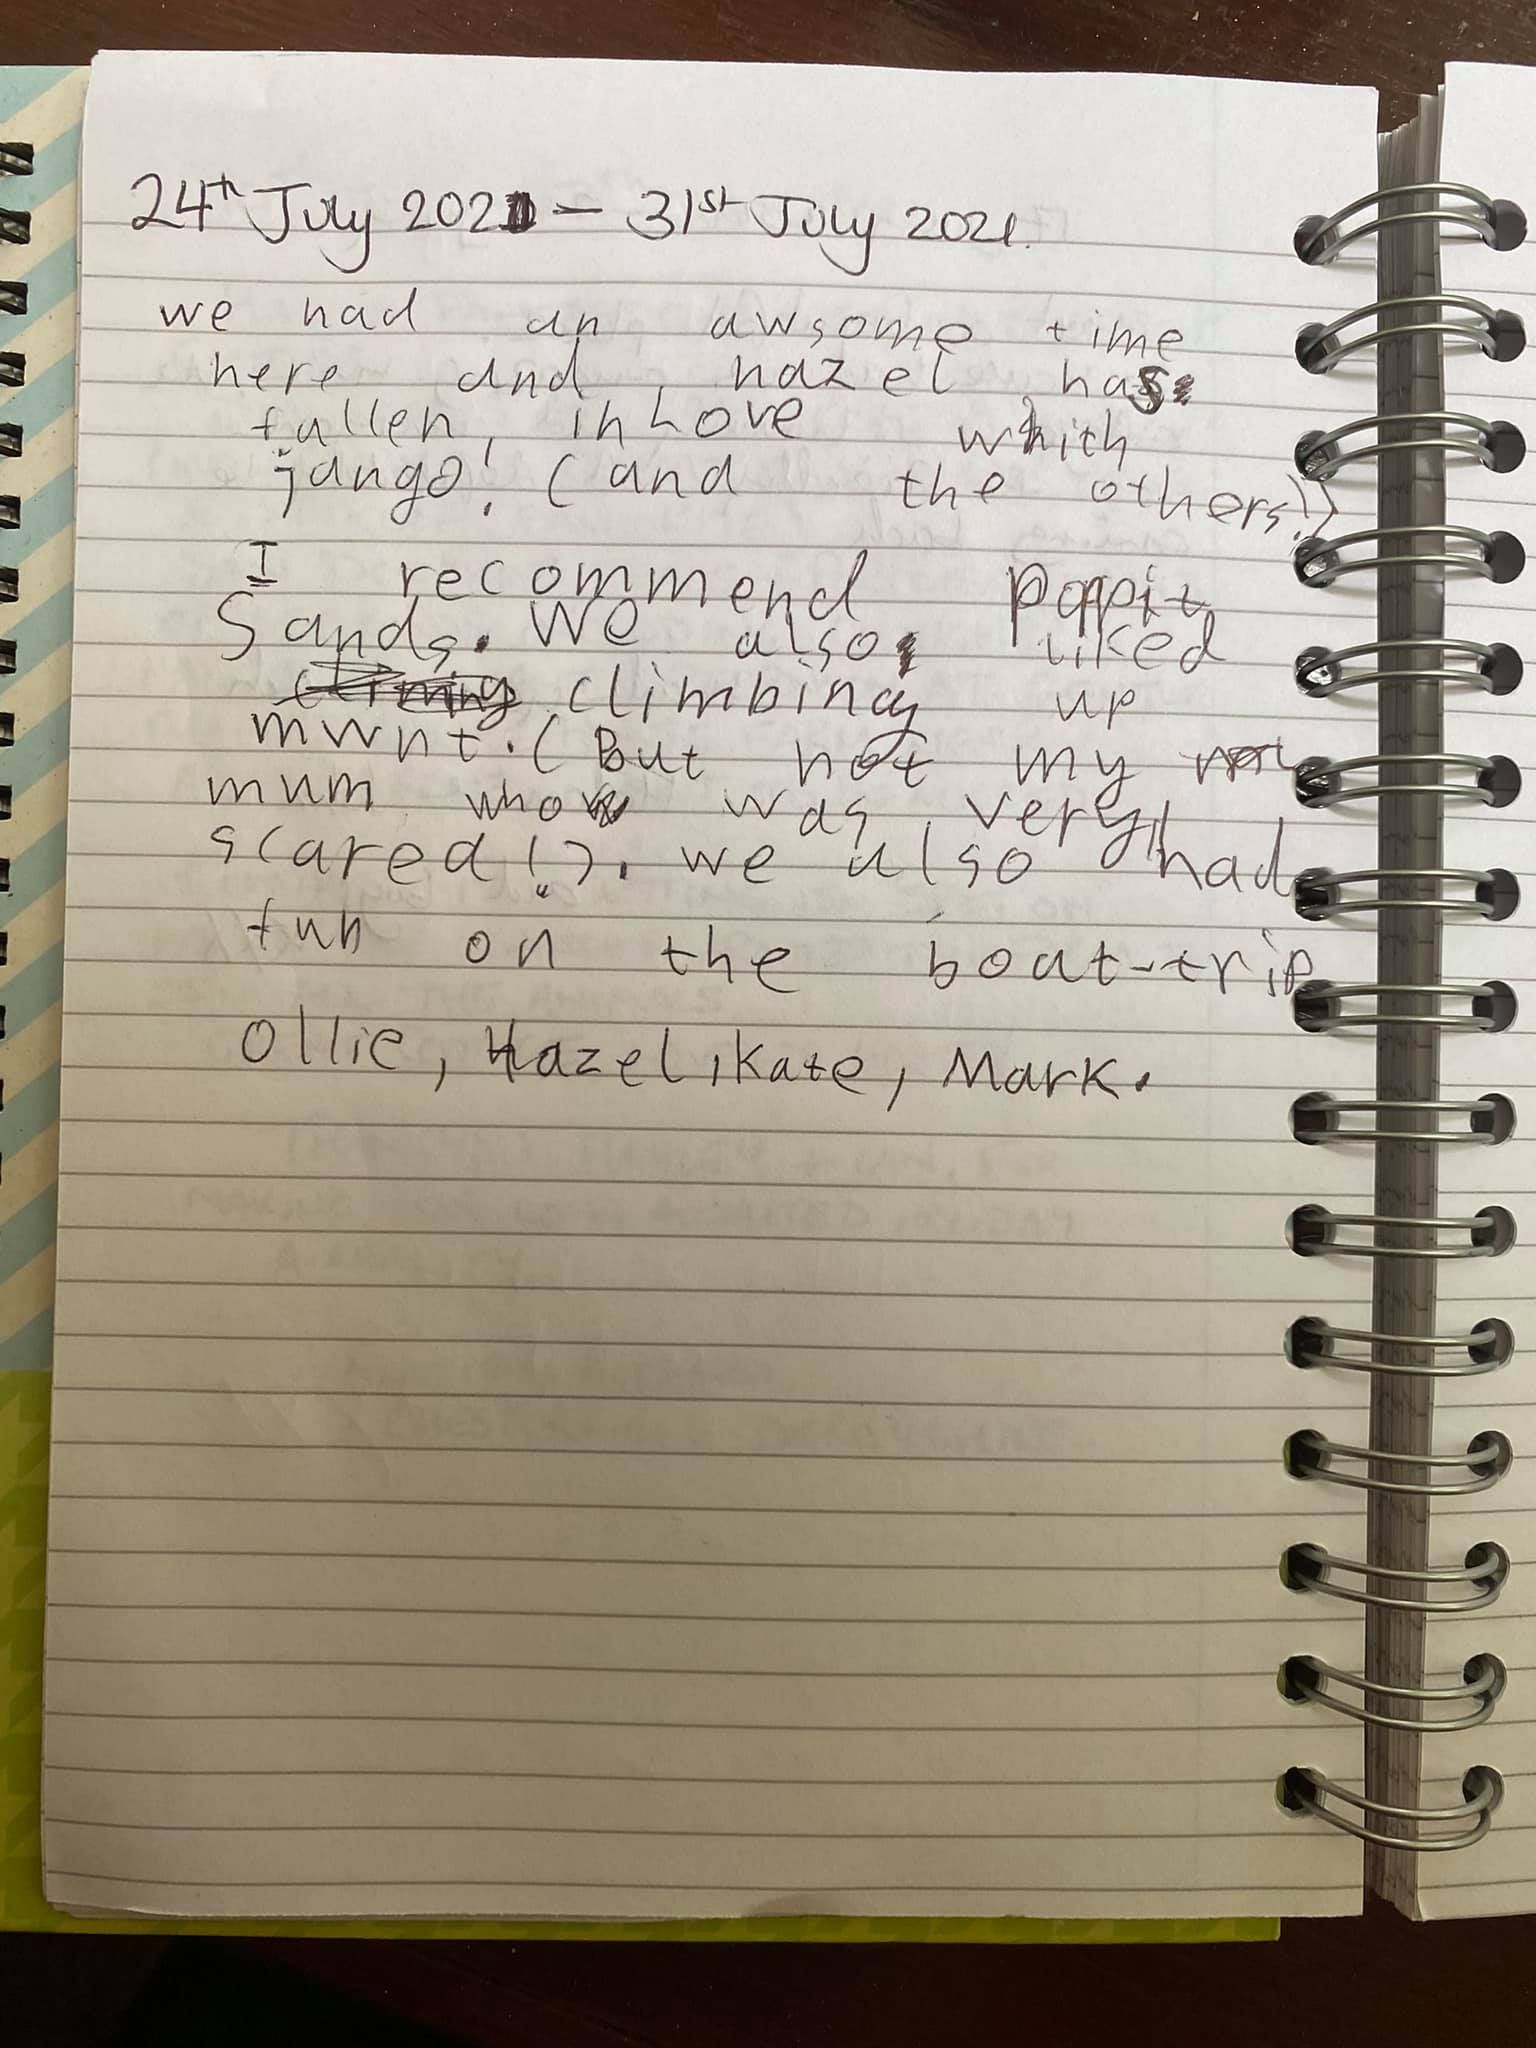 24th July 2021 — 31st July 2021.
we had an awsome time
here and, hazel has
fallen, in Love with
jango! (and the others!)
I recommend Poppit
Sands. We also liked
climbing up
mwnt. (But not my
mum who was very
scared!). we also had
fun on the boat-trip
Ollie, Hazel, kate, Mark.